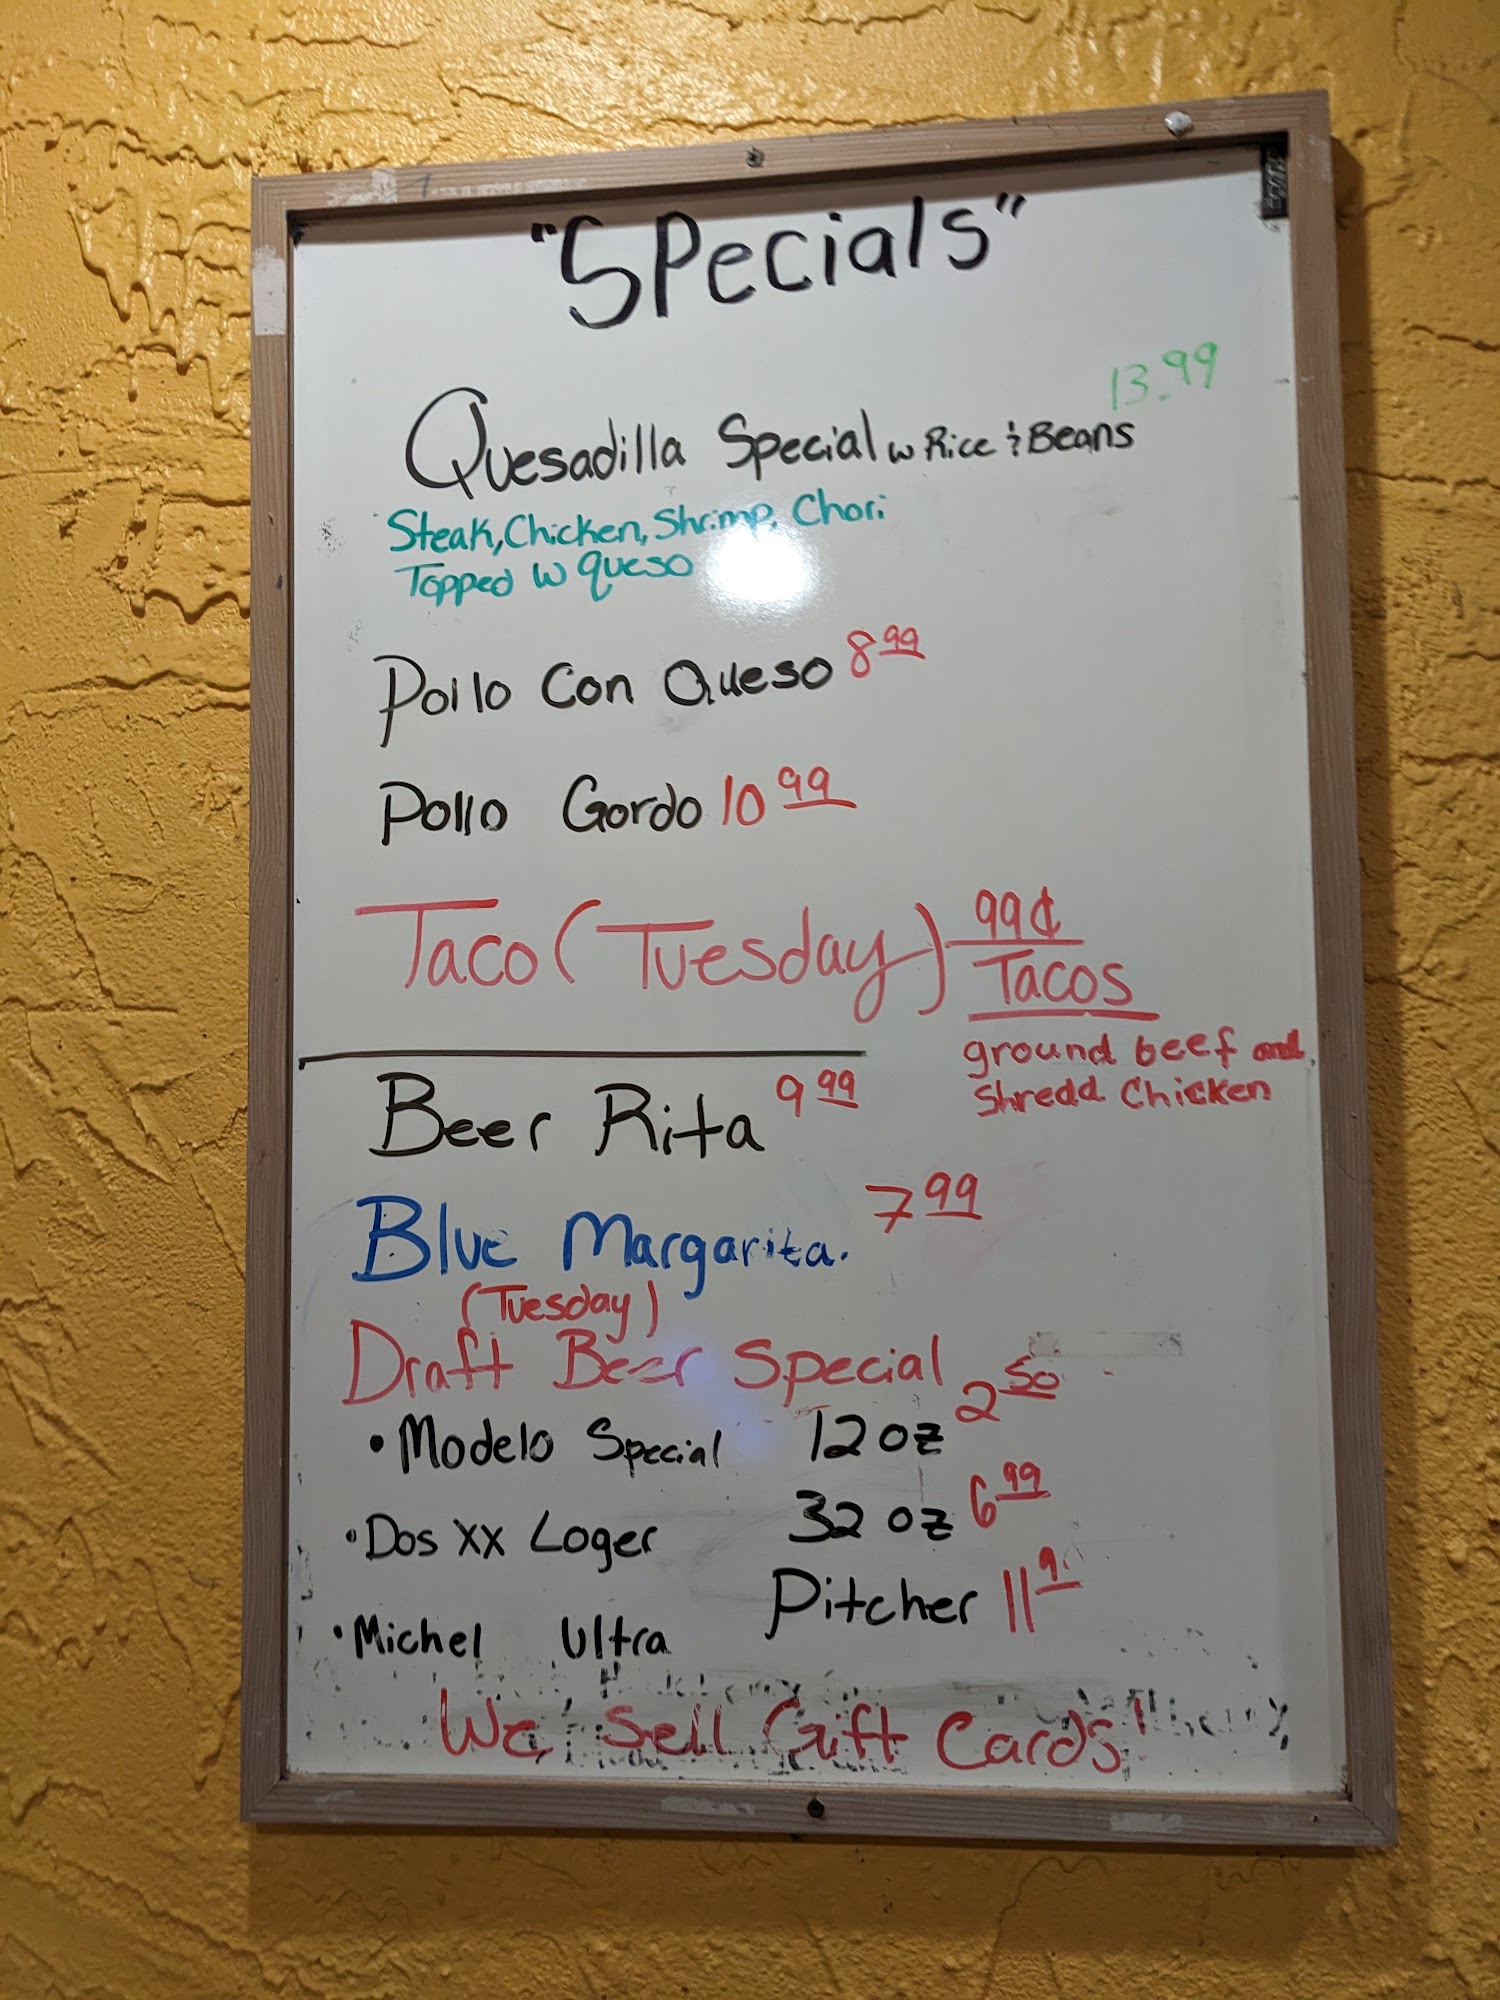 "Specials"
13.99
Quesadilla Special w Rice & Beans
Steak, Chicken, Shrimp, Chori
Topped w queso
Pollo Con Queso 8 99
Pollo Gordo 10 99
Taco (Tuesday) 99¢
Tacos
ground beef and
Shredd Chicken
Beer Rita 9 99
Blue Margarita. 7 99
(Tuesday)
Draft Beer Special
• Modelo Special 12 oz 2 50
• Dos XX Loger 32 oz 6 99
• Michel Ultra Pitcher 11 9
We Sell Gift Cards!